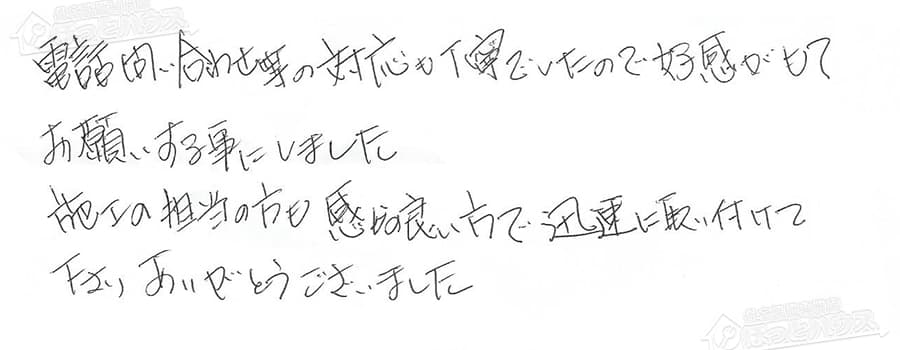 電話問い合わせ時の対応も丁寧でしたので好感がもて
お願いする事にしました
施工の担当の方も感じの良い方で迅速に取り付けて
下さりありがとうございました
ほっとハウス
ほっとハウス